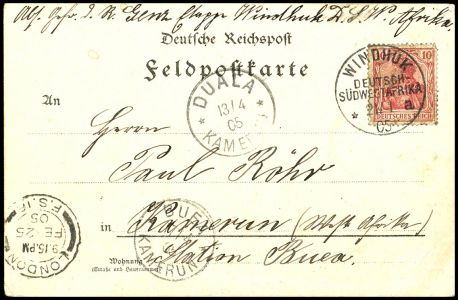 Abs. Gefr. d. R. Genz Etappe Windhuk D. S. W. Afrika.
Deutsche Reichspost
Feldpostkarte
An
WINDHUK
DEUTSCH-
SÜDWESTAFRIKA
a
05
10
DEUTSCHES REICH
DUALA
13/4
05
KAMERUN
Herrn
Paul Röhr
in Kamerun (West Afrika)
Station Buea.
Wohnung
(Straße und Hausnummer)
BUEA
KAMERUN
LONDON
9.15 PM
FE 25
05
F.S.